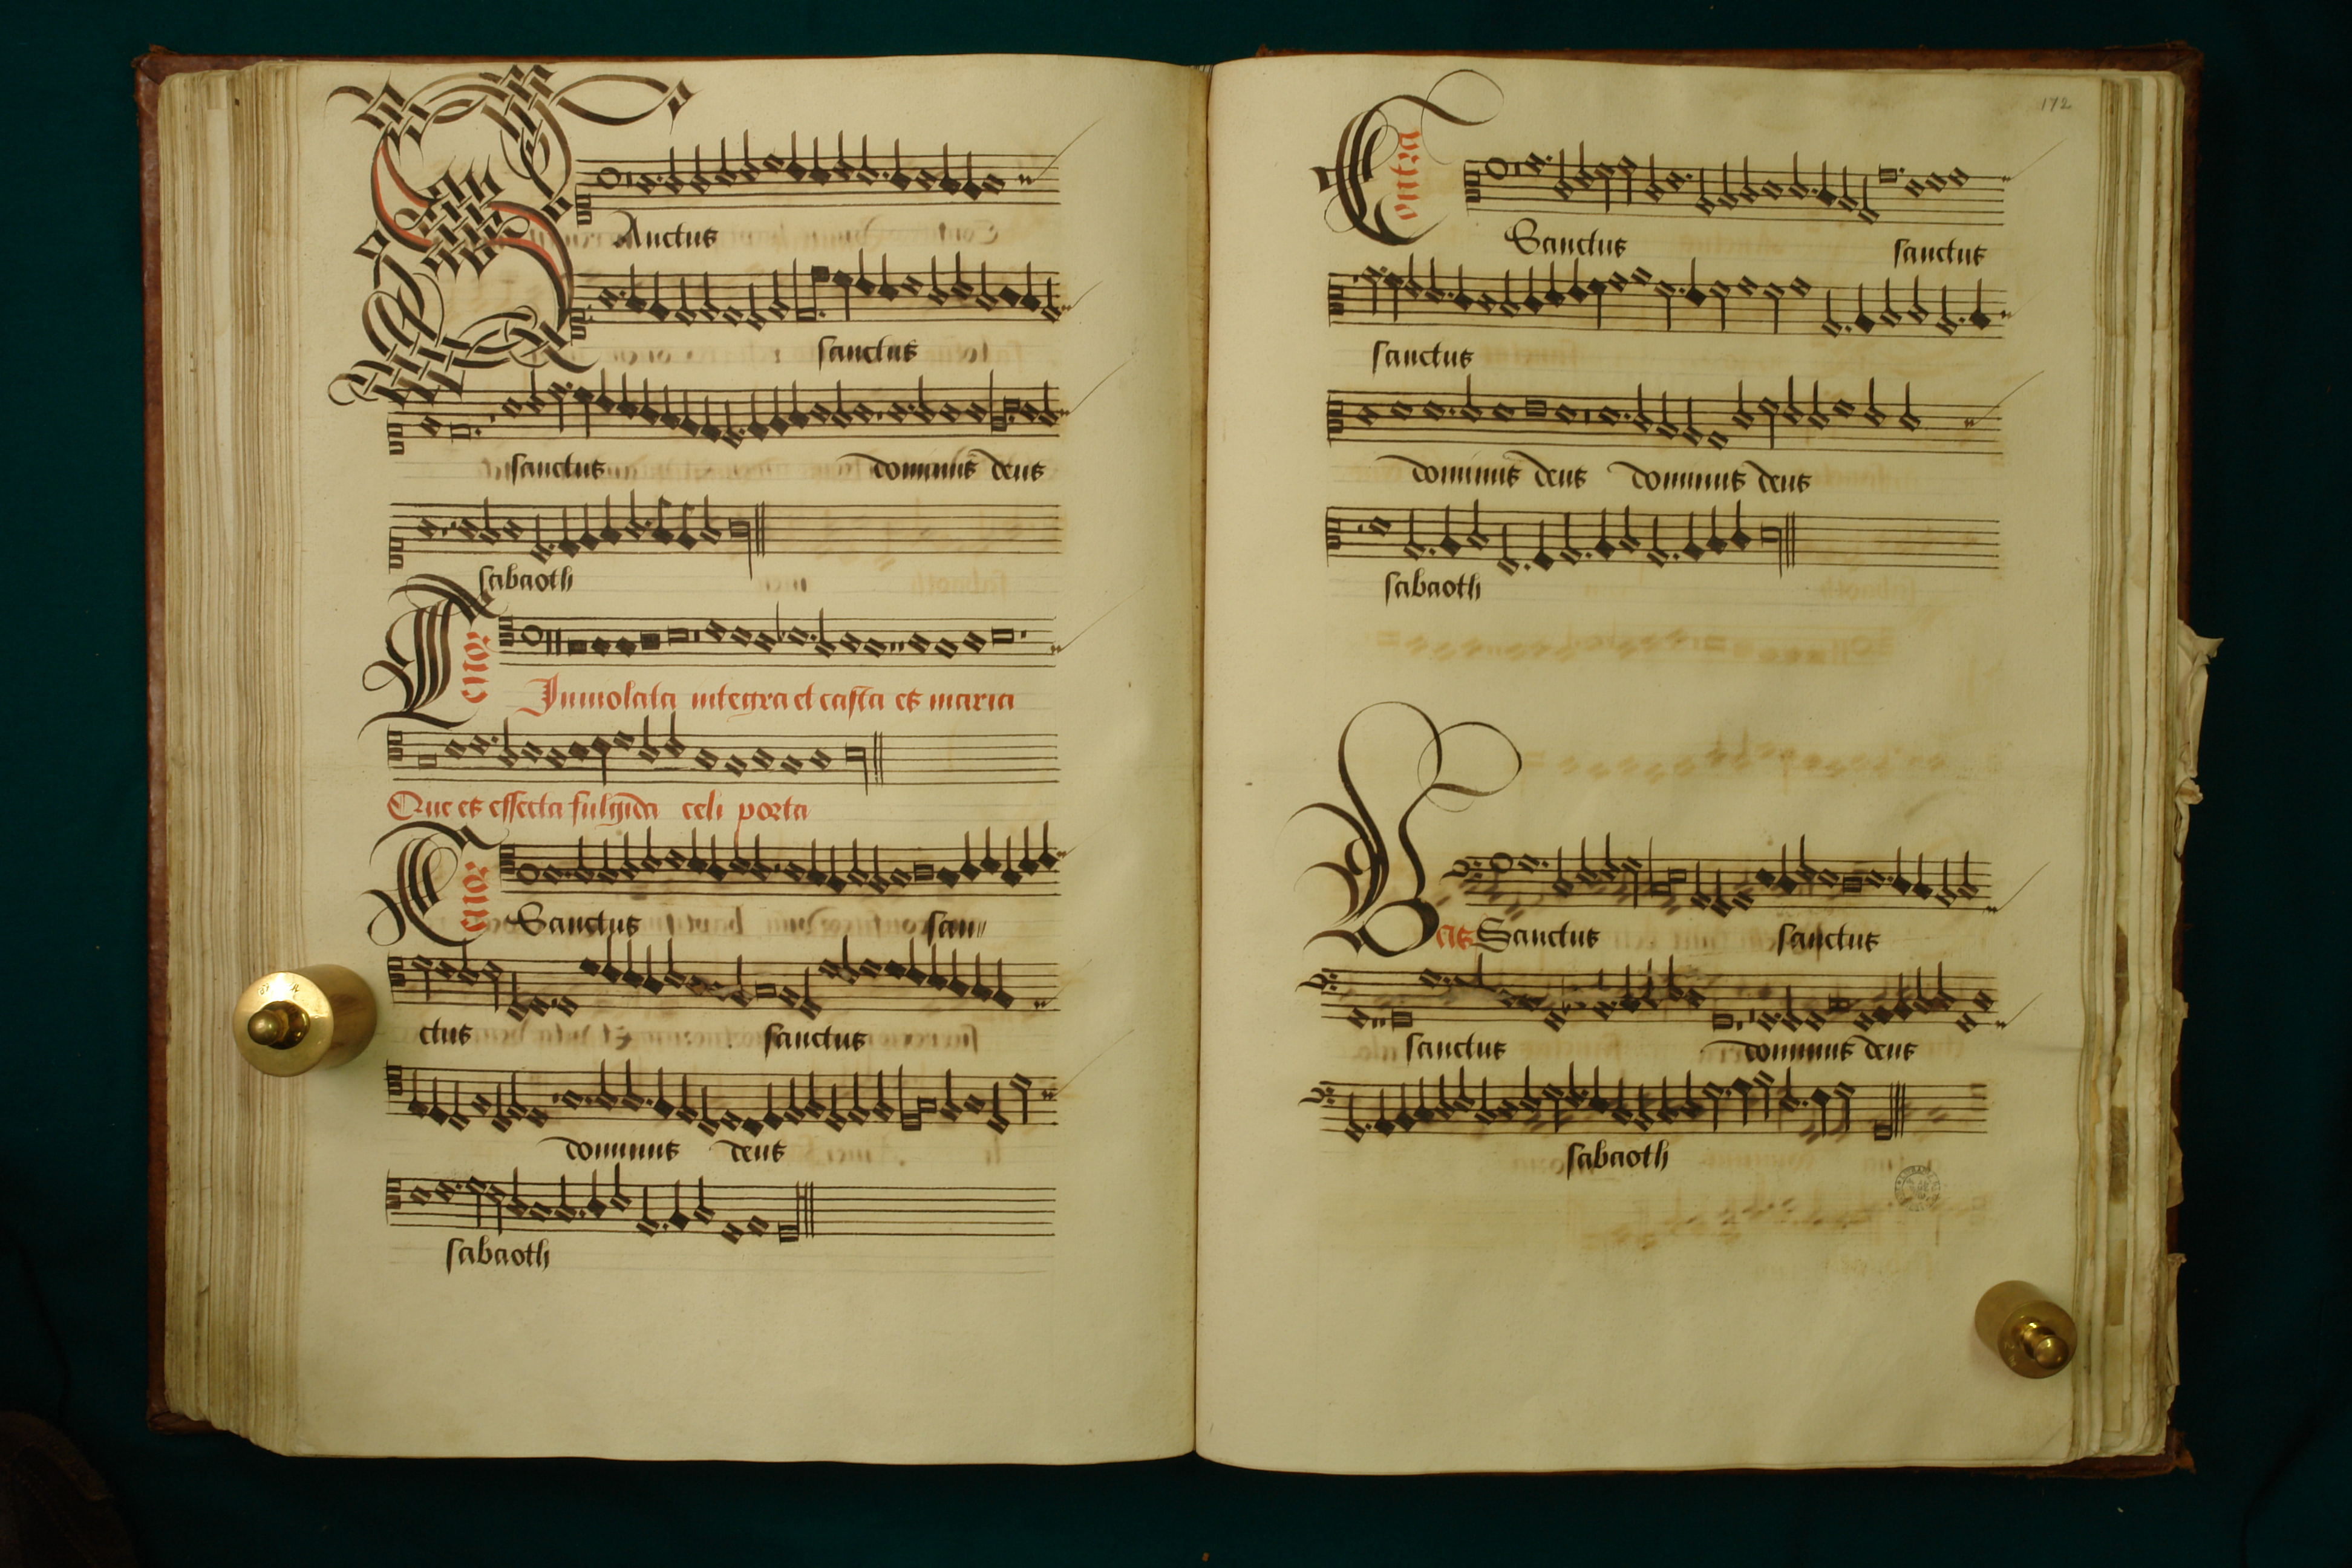 SAnctus
sanctus
sanctus dominus deus
sabaoth
Tenor
Inviolata integra et casta es maria
Que es effecta fulgida celi porta
Tenor Sanctus san
ctus sanctus
dominus deus
sabaoth
172
Contra Sanctus sanctus
sanctus
dominus deus dominus deus
sabaoth
Bas Sanctus sanctus
sanctus dominus deus
sabaoth